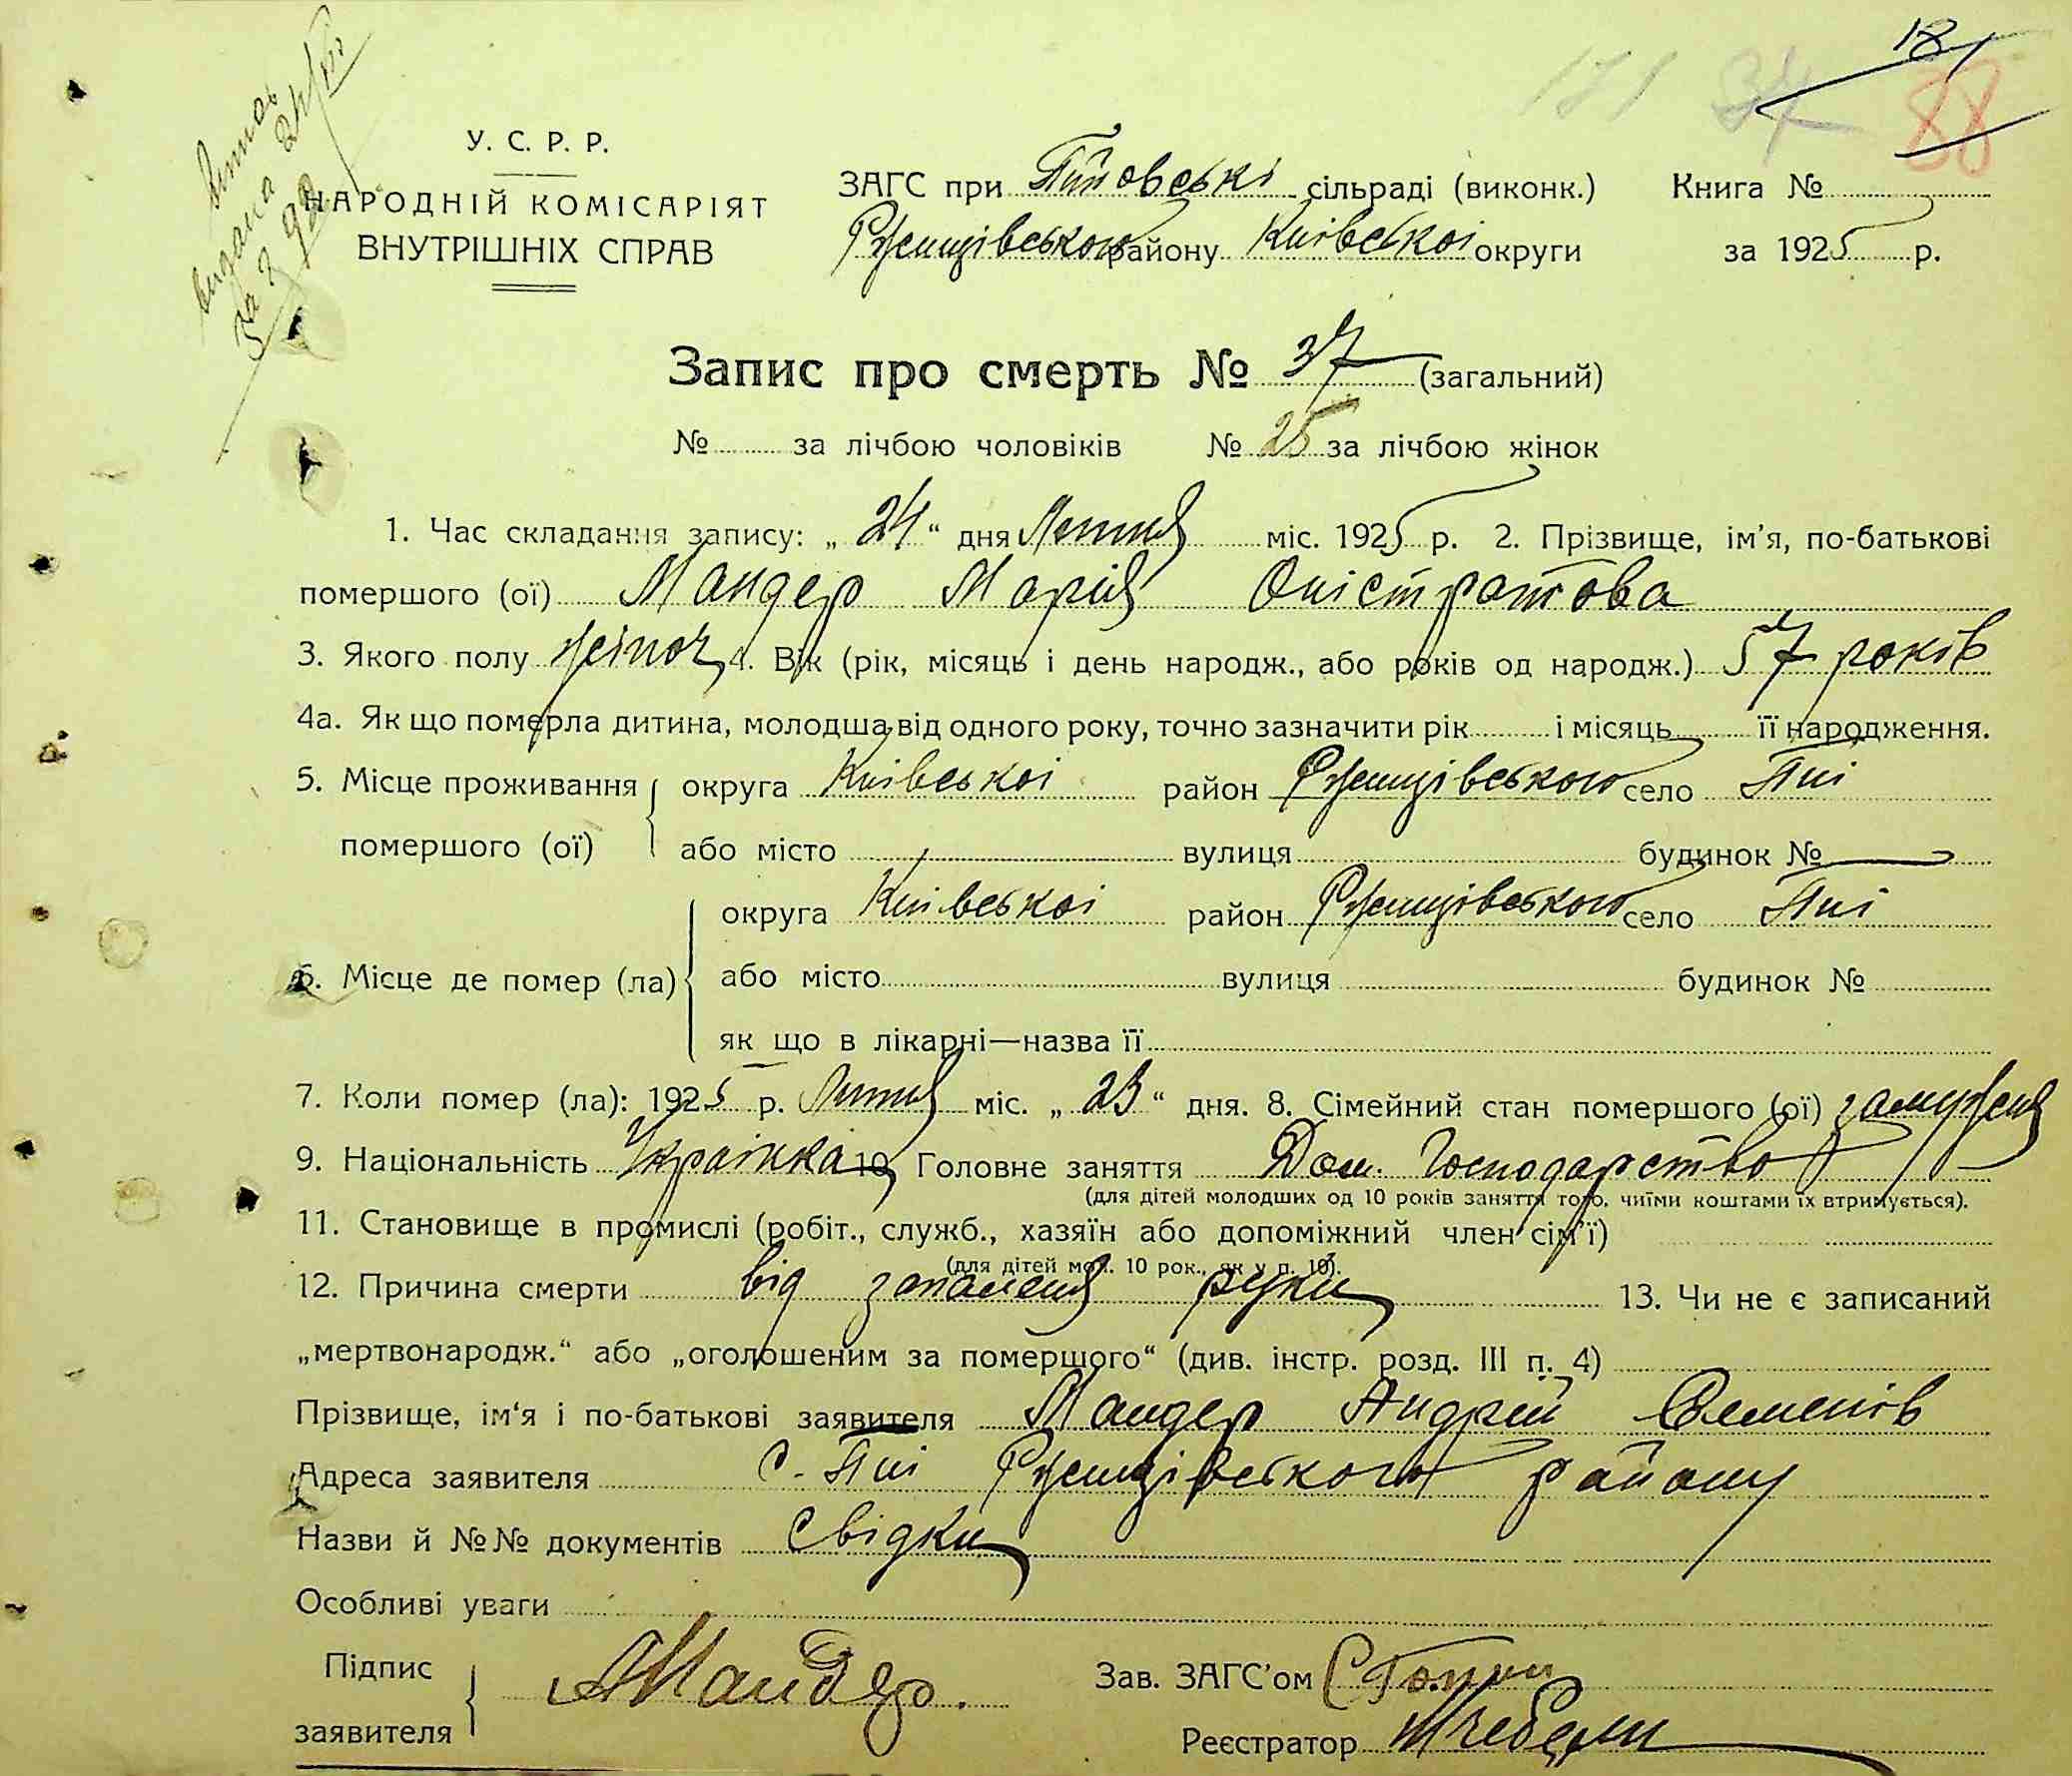 18
171 37 88
У. С. Р. Р.
НАРОДНІЙ КОМІСАРІЯТ
ВНУТРІШНІХ СПРАВ
ЗАГС при Пійовські сільраді (виконк.) Книга №
Ржищівського району Київськоі округи за 1925 р.
Запис про смерть № 37 (загальний)
№ за лічбою чоловіків № 25 за лічбою жінок
1. Час складання запису: „ 24 “ дня Липня міс. 1925 р. 2. Прізвище, ім'я, по-батькові
помершого (ої) Мандер Марія Оністратова
3. Якого полу жіноч. 4. Вік (рік, місяць і день народж., або років од народж.) 57 років
4а. Як що померла дитина, молодша від одного року, точно зазначити рік і місяць її народження.
5. Місце проживання округа Київськоі район Ржищівського село Пиі
помершого (ої) або місто вулиця будинок №
округа Київськоі район Ржищівського село Пиі
6. Місце де помер (ла) або місто вулиця будинок №
як що в лікарні—назва її
7. Коли помер (ла): 1925 р. Липня міс. „ 23 “ дня. 8. Сімейний стан помершого (ої) замужня
9. Національність Украінка 10. Головне заняття Дом. Господарство
(для дітей молодших од 10 років заняття того, чиїми коштами їх втримується).
11. Становище в промислі (робіт., служб., хазяїн або допоміжний член сім'ї)
(для дітей мол. 10 рок., як у п. 10).
12. Причина смерти від запаленя руки 13. Чи не є записаний
„мертвонародж.“ або „оголошеним за помершого“ (див. інстр. розд. III п. 4)
Прізвище, ім'я і по-батькові заявителя Мандер Андрій Семенів
Адреса заявителя С. Пиі Ржищівського району
Назви й №№ документів Свідки
Особливі уваги
Підпис
заявителя АМандер.
Зав. ЗАГС'ом
Реєстратор